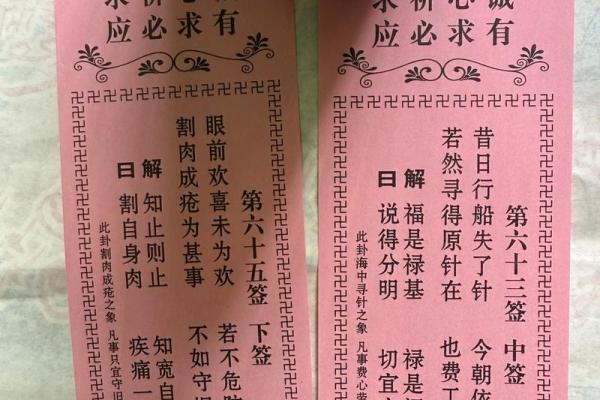 有求必应
第六十五签 下签
眼前欢喜未为欢 若不危
割肉成疮为甚事 不如守
解 知止则止 知宽自
曰 割自身肉 疾痛一
此卦割肉成疮之象 凡事只宜守旧
诚心祈求
有求必应
第六十三签 中签
昔日行船失了针 今朝依
若然寻得原针在 也费工
解 福是禄基 禄是
曰 说得分明 切宜
此卦海中寻针之象 凡事费心